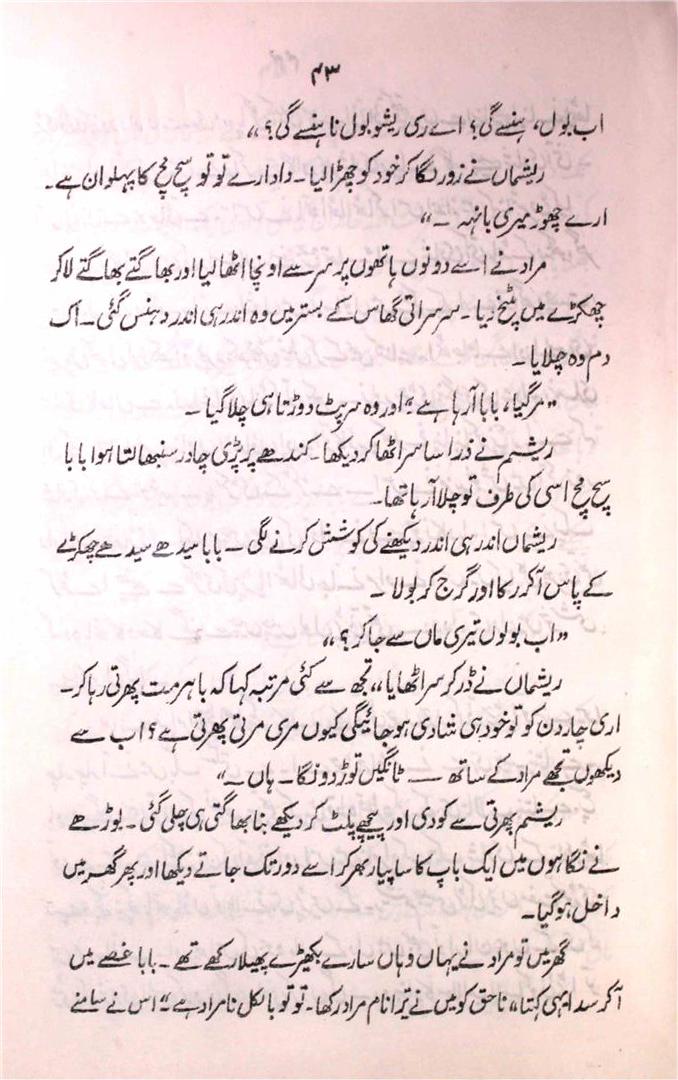 ۴۳
اب بول، ہنسے گی؟ اے ری ریشو بول نا ہنسے گی؟،،
ریشماں نے زور لگا کر خود کو چھڑا لیا۔ دادا رے تو تو سچ مچ کا پہلوان ہے۔
ارے چھوڑ میری بانہہ ۔،،
مراد نے اسے دونوں ہاتھوں پر سر سے اونچا اٹھا لیا اور بھاگتے بھاگتے لا کر
چھکڑے میں پٹخ دیا۔ سرسراتی گھاس کے بستر میں وہ اندر ہی اندر دہنس گئی ۔ اک
دم وہ چلایا۔
،،مر گیا، بابا آ رہا ہے،، اور وہ سرپٹ دوڑتا ہی چلا گیا ۔
ریشم نے ذرا سا سر اٹھا کر دیکھا۔ کندھے پر پڑی چادر سنبھالتا ہوا بابا
سچ مچ اسی کی طرف تو چلا آ رہا تھا۔
ریشماں اندر ہی اندر دیکھنے کی کوشش کرنے لگی ۔ بابا سیدھے سیدھے چھکڑے
کے پاس آ کر رکا اور گرج کر بولا ۔
،،اب بولوں تیری ماں سے جا کر؟،،
ریشماں نے ڈر کر سر اٹھایا،، تجھ سے کئی مرتبہ کہا کہ باہر مت پھرتی رہا کر۔
اری چار دن کو تو خود ہی شادی ہو جائیگی کیوں مری مرتی پھرتی ہے؟ اب سے
دیکھوں تجھے مراد کے ساتھ —— ٹانگیں توڑ دونگا۔ ہاں ۔،،
ریشم پھرتی سے کودی اور پیچھے پلٹ کر دیکھے بنا بھاگتی ہی چلی گئی ۔ بوڑھے
نے نگاہوں میں ایک باپ کا سا پیار بھر کر اسے دور تک جاتے دیکھا اور پھر گھر میں
داخل ہو گیا۔
گھر میں تو مراد نے یہاں وہاں سارے بکھیڑے پھیلا رکھے تھے ۔ بابا غصے میں
آ کر سدا یہی کہتا،، ناحق کو میں نے تیرا نام مراد رکھا۔ تو تو بالکل نامراد ہے،، اس نے سامنے